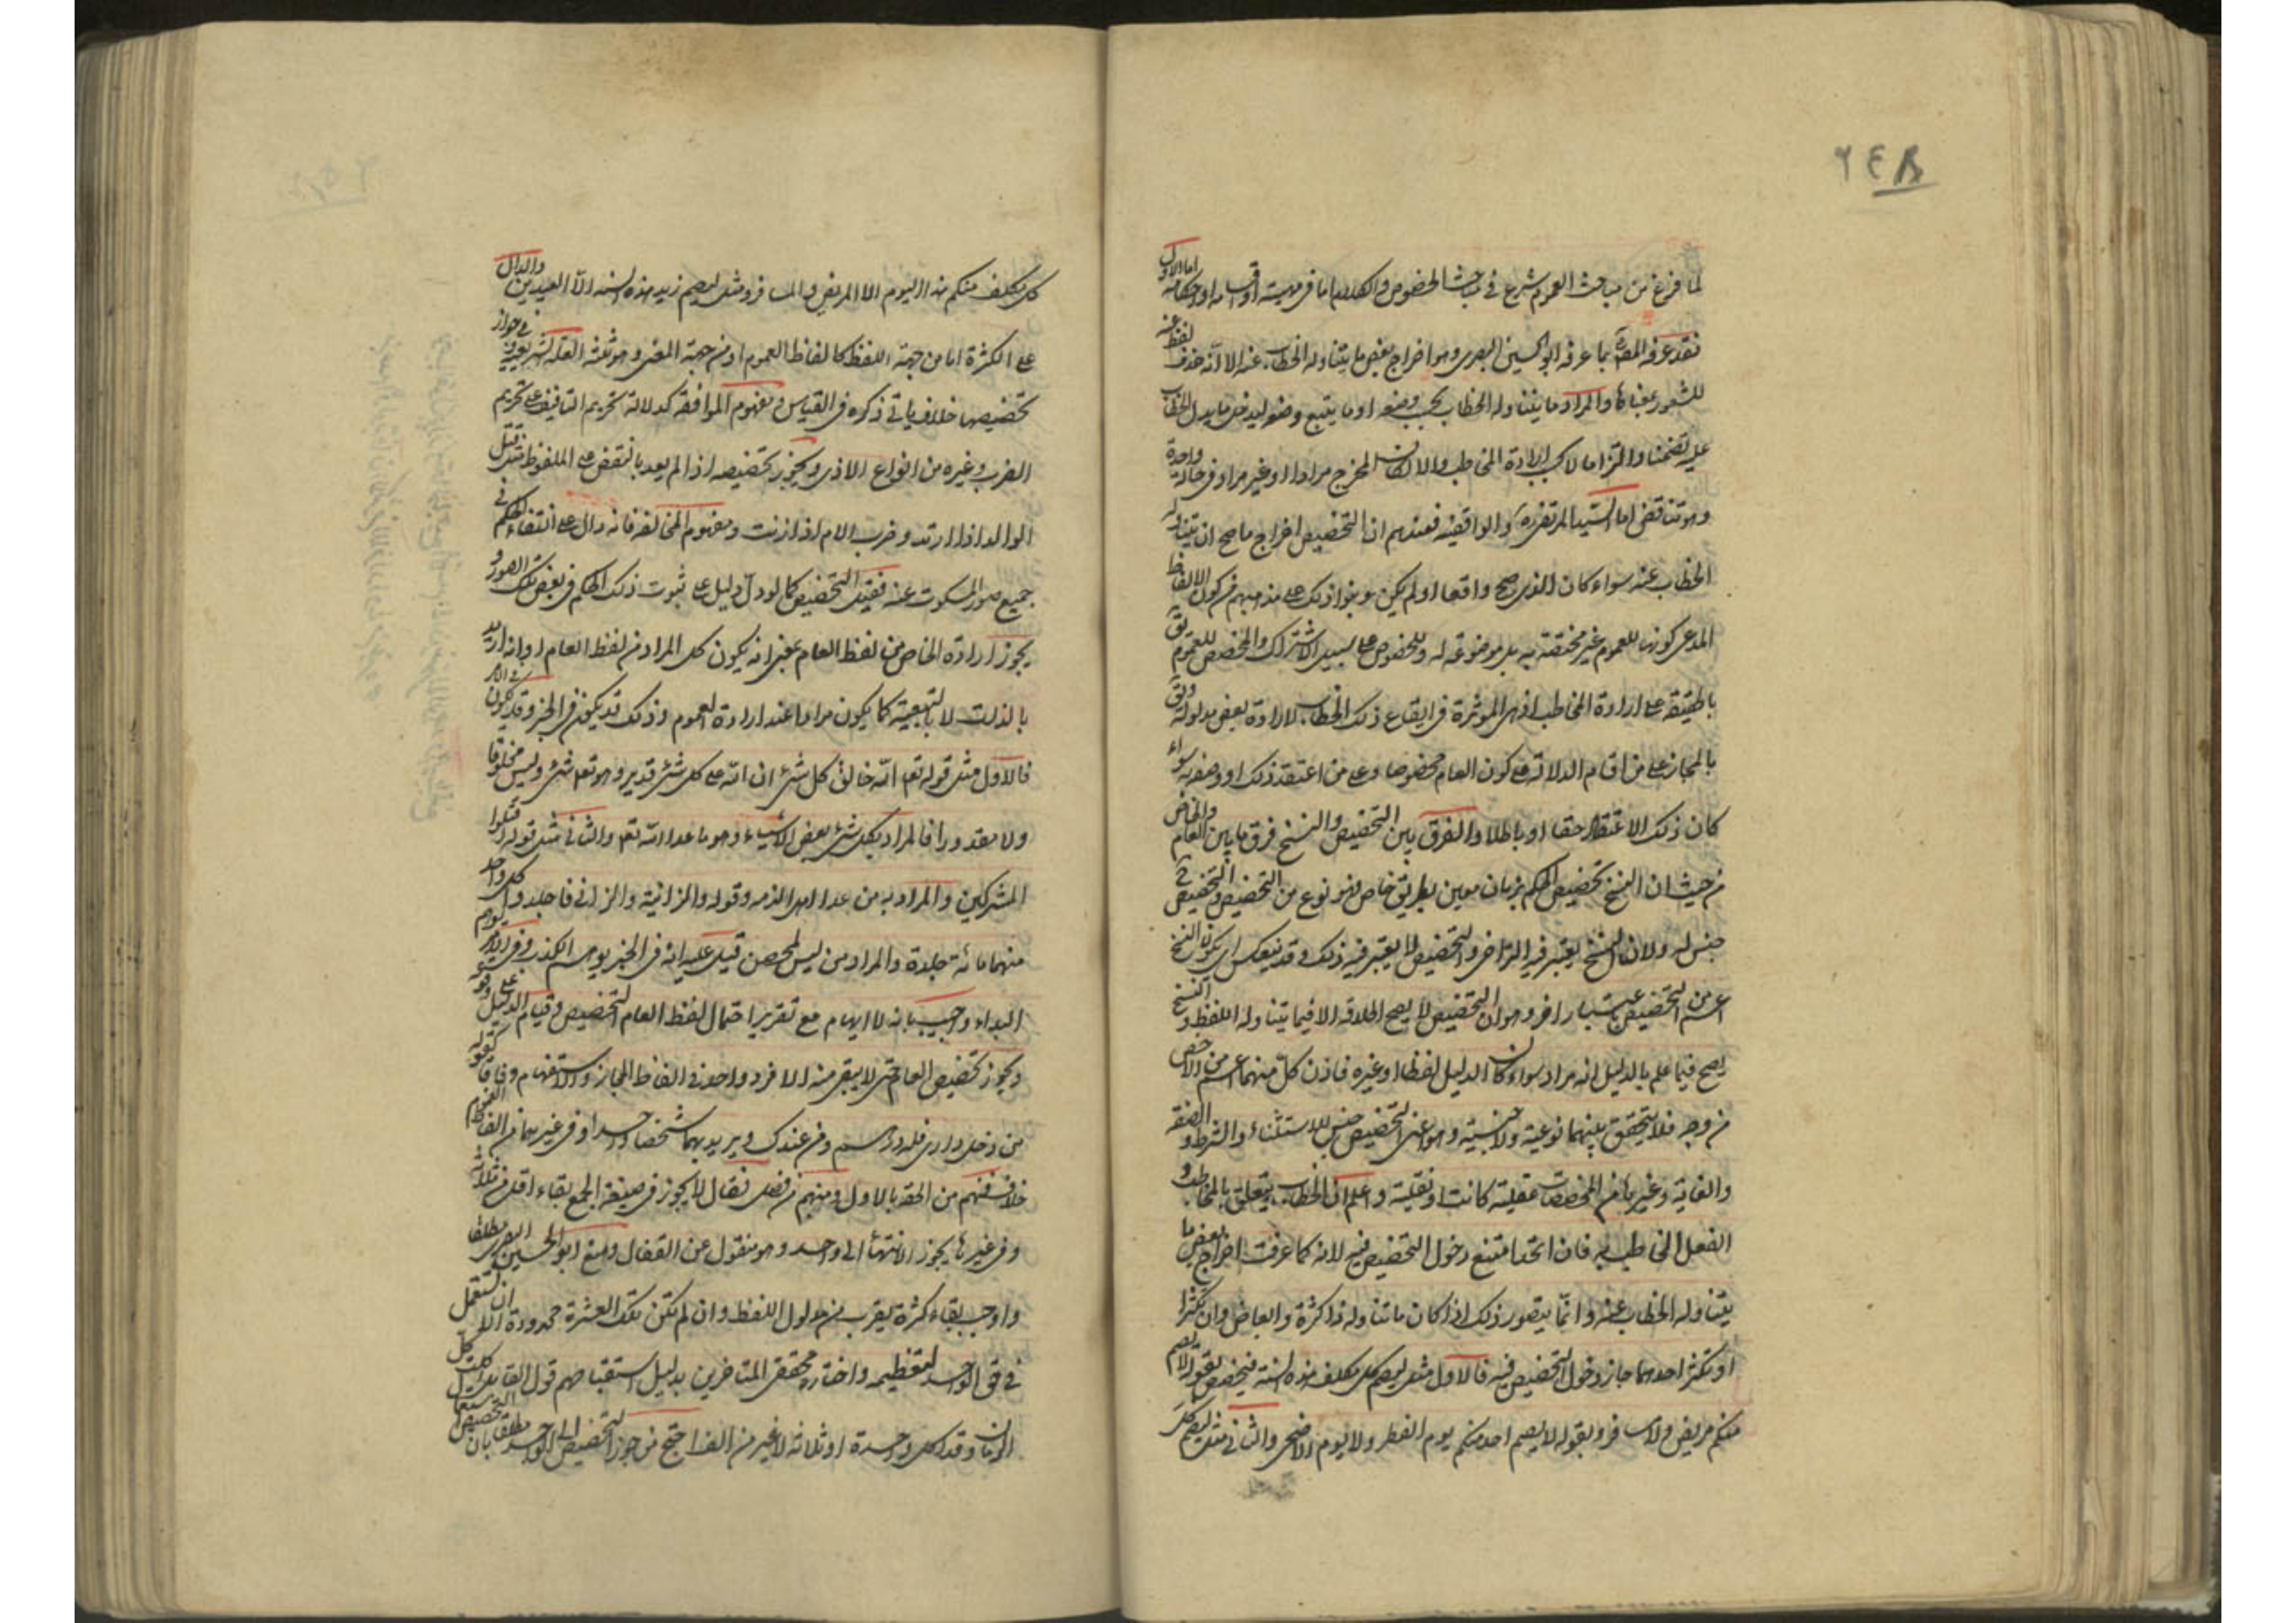 ٢٤٨
لما فرغ من مباحث العموم شرع في مباحث الخصوص والكلام اما في مهيته او اقسامه او احكامه اما الاول
فقد عرفه المصنف بما عرفه ابو الحسين البصري وهو اخراج بعض ما يتناوله الخطاب عنه الا انه حذف لفظ عنه
للشعور بمعناها والمراد ما يتناوله الخطاب بحسب وضعه او ما يتبع وضعه ليدخل ما يدل الخطاب
عليه تضمنا والتزاما لا بحسب ارادة المخاطب والا لكان المخرج مرادا او غير مراد في حالة واحدة
وهو تناقض اما السيد المرتضى والواقفية فعندهم ان التخصيص اخراج ما صح ان يتناوله
الخطاب عنه سواء كان الذي صح واقعا او لم يكن وبنوا ذلك على مذهبهم من كون الالفاظ
المدعى كونها للعموم غير مختصة به بل موضوعة له وللخصوص على سبيل الاشتراك والمخصص للعموم يق
بالحقيقة على ارادة المخاطب اذ هي الموثرة في ايقاع ذلك الخطاب لارادة بعض مدلوله ويق
بالمجاز على من اقام الدلالة على كون العام مخصوصا وعلى من اعتقد ذلك او وصفه به سواء
كان ذلك الاعتقاد حقا او باطلا والفرق بين التخصيص والنسخ فرق ما بين العام والخاص
من حيث ان النسخ تخصيص الحكم بزمان معين بطريق خاص فهو نوع من التخصيص والتخصيص ح
جنس له ولان النسخ يعتبر فيه التراخي والتخصيص لا يعتبر فيه ذلك وقد ينعكس اي يكون النسخ
اعم من التخصيص باعتبار اخر وهو ان التخصيص لا يصح اطلاقه الا فيما يتناوله اللفظ والنسخ
يصح فيما علم بالدليل انه مراد سواء كان الدليل لفظا او غيره فاذن كل منهما اعم من الاخص
من وجه فلا يتحقق بينهما نوعية ولا جنسية وهو اعني التخصيص جنس للاستثناء والشرط والصفة
والغاية وغيرها من المخصصات عقلية كانت او نقلية واعلم ان الخطاب يتعلق بالمخاطب و
الفعل المخاطب به فان اتحدا امتنع دخول التخصيص فيه لانه كما عرفت اخراج بعض ما
يتناوله الخطاب عنه وانما يتصور ذلك اذا كان ما تناوله ذا كثرة وابعاض وان تكثرا
او تكثر احدهما جاز دخول التخصيص فيه فالاول مثل ليصم كل مكلف هذه السنة فيخصص بقوله لا يصم
منكم مريض ولا مسافر وبقوله لا يصم احد منكم يوم الفطر ولا يوم الاضحى والثاني مثل ليصم كل
كل مكلف منكم هذا اليوم الا المريض والمسافر ومثل ليصم زيد هذه السنة الا العيدين والدال
على الكثرة اما من جهة اللفظ كالفاظ العموم او من جهة المعنى وهو ثلثة العلة الشرعية وفي جواز
تخصيصها خلاف ياتي ذكره في القياس ومفهوم الموافقة كدلالة تحريم التافيف على تحريم
الضرب وغيره من انواع الاذى ويجوز تخصيصه اذا لم يعد بالنقض على الملفوظ مثل قتل
الوالد اذا ارتد وضرب الام اذا زنت ومفهوم المخالفة فانه دال على انتفاء الحكم في
جميع صور المسكوت عنه فيقبل التخصيص كما لو دل دليل على ثبوت ذلك الحكم في بعض تلك الصور و
يجوز ارادة الخاص من لفظ العام بمعنى انه يكون كل المراد من لفظ العام او انه اريد
بالذات لا بالتبعية كما يكون مرادا عند ارادة العموم وذلك قد يكون في الخبر وقد يكون في الامر
فالاول مثل قوله تعم الله خالق كل شئ ان الله على كل شئ قدير وهو تعم شئ وليس مخلوقا
ولا مقدورا فالمراد بكل شئ بعض الاشياء وهو ما عدا الله تعم والثاني مثل قوله اقتلوا
المشركين والمراد به من عدا اهل الذمه وقوله والزانية والزاني فاجلدوا كل واحد
منهما مائة جلدة والمراد من ليس بمحصن قيل عليه انه في الخبر يوهم الكذب وفي الامر يوهم
البداء واجيب بانه لا ايهام مع تقرير احتمال لفظ العام للتخصيص وقيام الدليل على وقوعه
ويجوز تخصيص العام حتى لا يبقى منه الا فرد واحد في الفاظ المجاز والاستفهام وفاقا كقوله
من دخل داري فله درهم ومن عندك ويريد بهما شخصا واحدا وفي غيرهما من الفاظ العموم
خلاف فمنهم من الحقه بالاول ومنهم من فصل فقال لا يجوز في صيغة الجمع بقاء اقل من ثلاثة
وفي غيرها يجوز الانتهاء الى واحد وهو منقول عن القفال ومنع ابو الحسين البصري مطلقا
واوجب بقاء كثرة يقرب من مدلول اللفظ وان لم تكن تلك العشرة محدودة الا ان يستعمل
في حق الواحد لتعظيمه واختاره محققي المتاخرين بدليل استقباحهم قول القائل اكلت كل
الرمان وقد اكل واحدة او ثلاثة لا غير من الف احتج من جوز التخصيص الى الواحد مطلقا بان